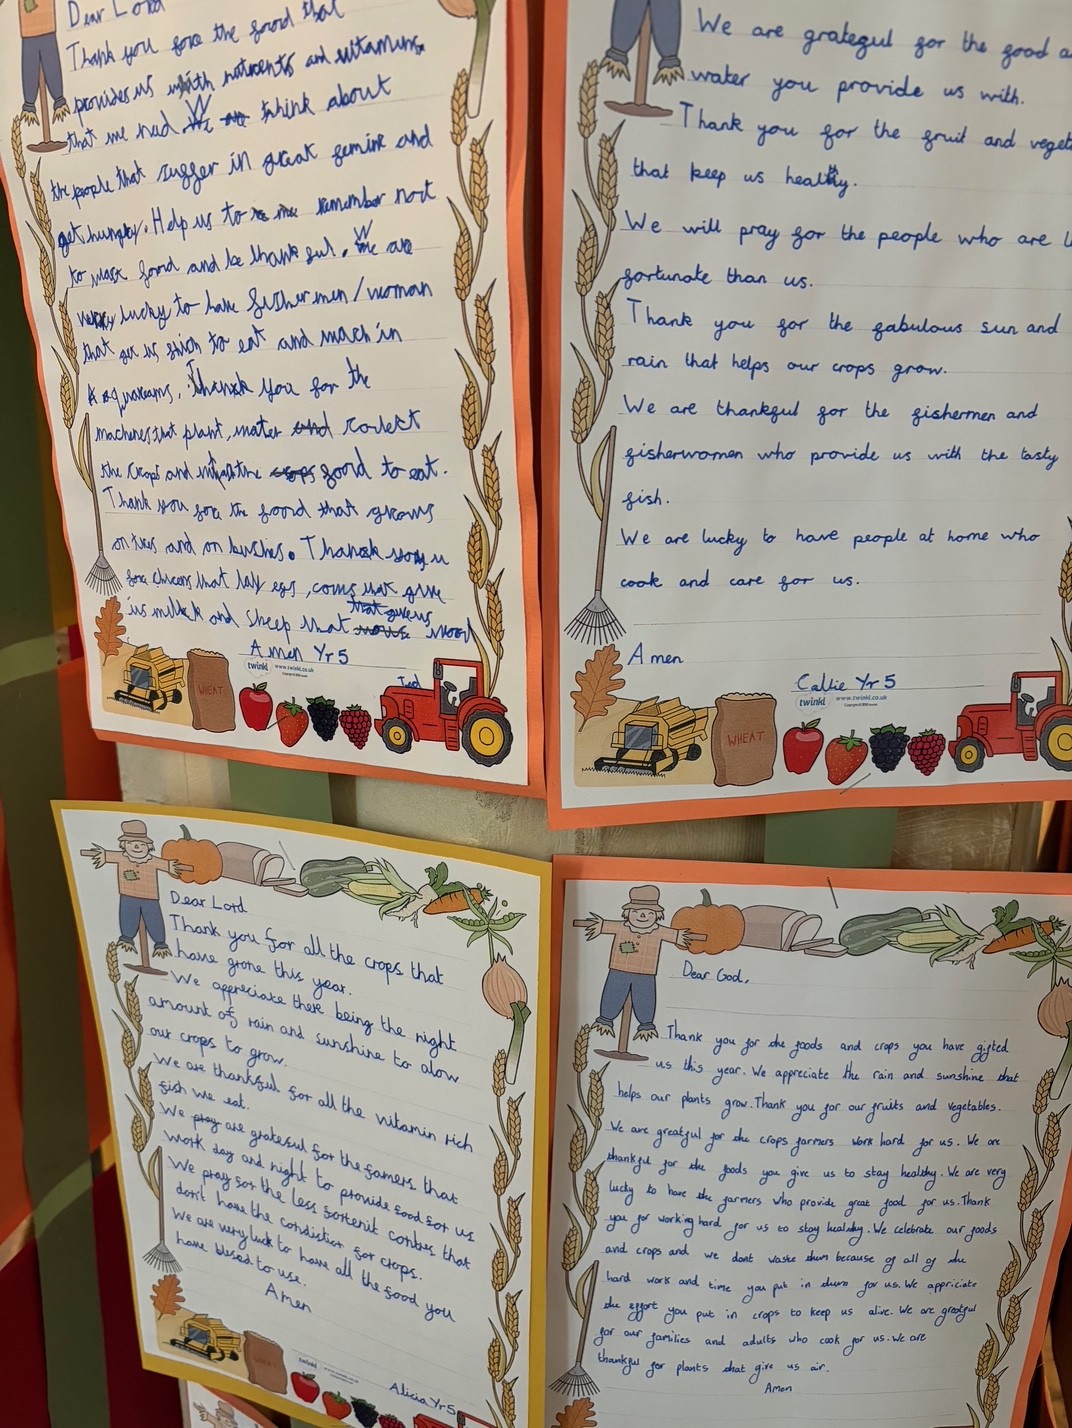 Dear Lord
Thank you fore the food that
provides us with nutrients and vitamins
that we need. We think about
the people that suffer in great femine and
get hungry. Help us to remember not
to wast food and be thankful. We are
very lucky to have fishermen/woman
that get us fish to eat and mach in
Thank you for the
machines that plant, water and colect
the crops and crops food to eat.
Thank you fore the food that grows
on trees and on bushes. Thank you
fore chicens that lay egs, cows that give
us milk and sheep that that give us wool
Amen Yr 5
twinkl www.twinkl.co.uk
Ted
WHEAT
We are grateful for the food a
water you provide us with.
Thank you for the fruit and veget
that keep us healthy.
We will pray for the people who are l
fortunate than us.
Thank you for the fabulous sun and
rain that helps our crops grow.
We are thankful for the fishermen and
fisherwomen who provide us with the tasty
fish.
We are lucky to have people at home who
cook and care for us.
Amen
Callie Yr 5
twinkl www.twinkl.co.uk
WHEAT
Dear Lord
Thank you for all the crops that
have grone this year.
We appreciate there being the right
amount of rain and sunshine to alow
our crops to grow.
We are thankful for all the vitamin rich
fish we eat.
We pray are grateful for the famers that
work day and night to provide food for us
We pray for the less fortenit contres that
don't have the condistior for crops.
We are very luck to have all the food you
have blesed to use.
Amen
WHEAT
twinkl
Alicia Yr 5
Dear God,
Thank you for the foods and crops you have gifted
us this year. We appreciate the rain and sunshine that
helps our plants grow. Thank you for our fruits and vegetables.
We are greatful for the crops farmers work hard for us. We are
thankful for the foods you give us to stay healthy. We are very
lucky to have the farmers who provide great food for us. Thank
you for working hard for us to stay healthy. We celebrate our foods
and crops and we dont waste them because of all of the
hard work and time you put in them for us. We appriciate
the effort you put in crops to keep us alive. We are greatful
for our families and adults who cook for us. We are
thankful for plants that give us air.
Amen